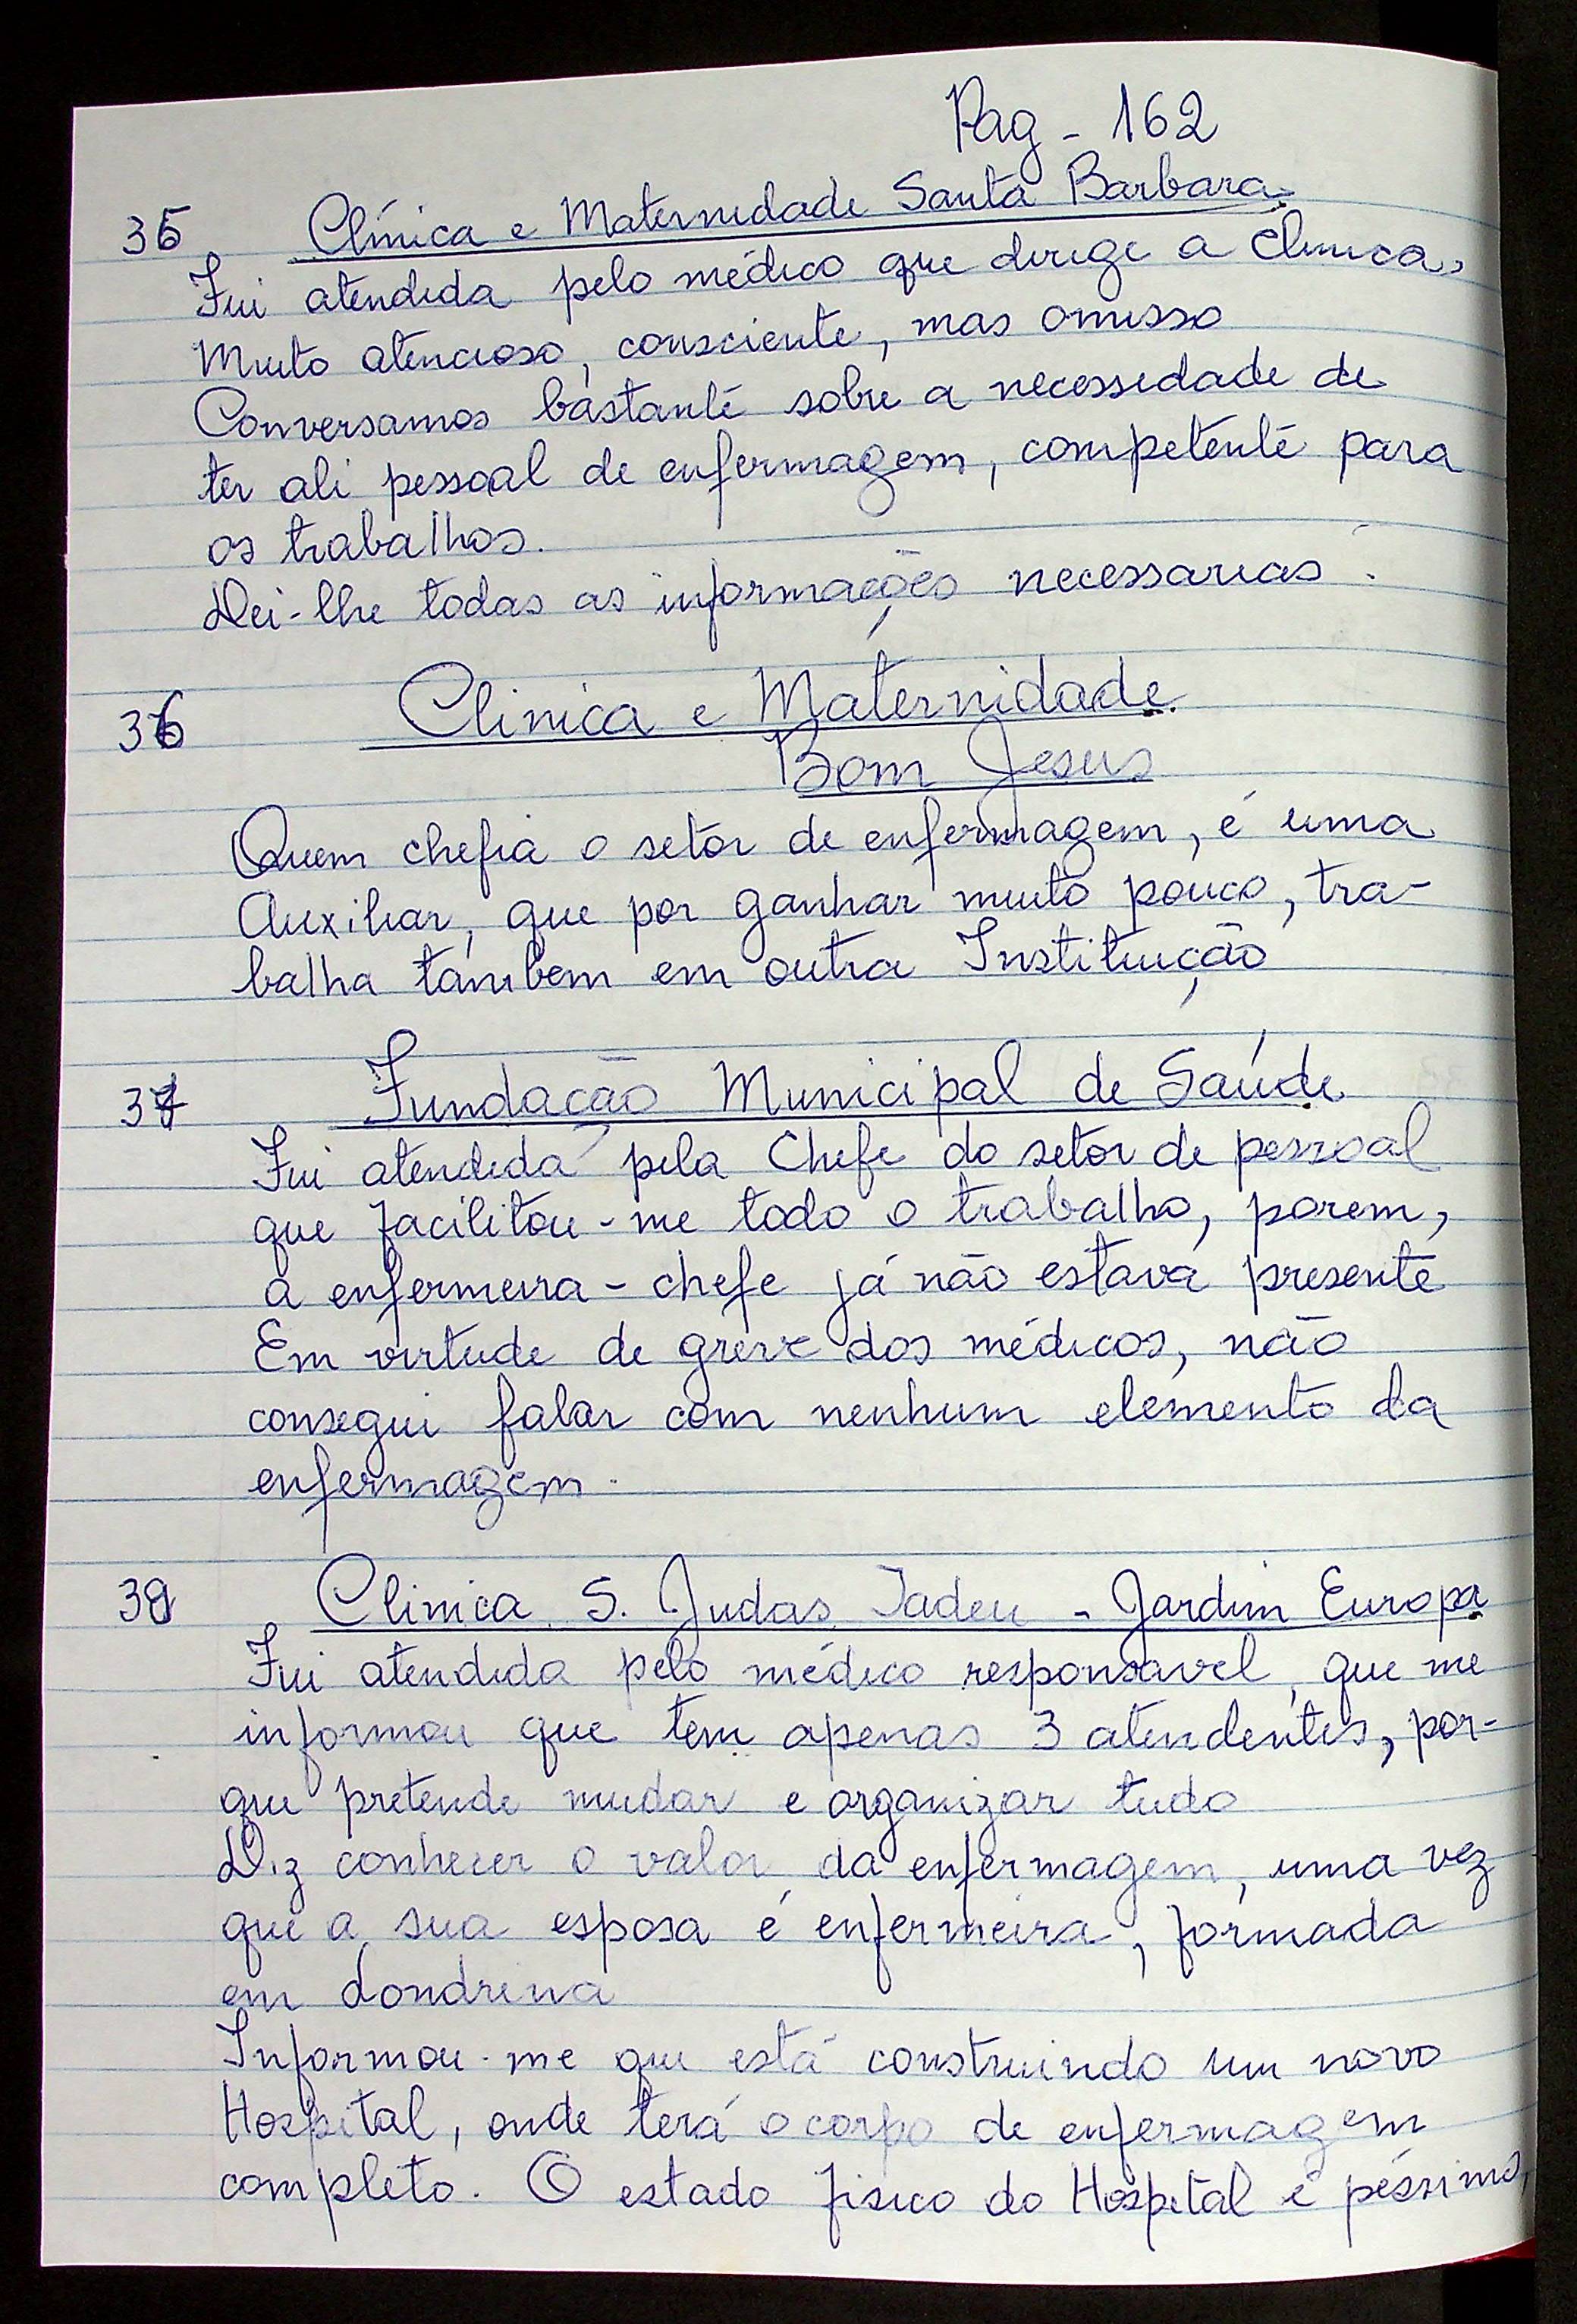 Pag - 162
35 Clínica e Maternidade Santa Barbara
Fui atendida pelo médico que dirige a Clinica,
Muito atencioso, consciente, mas omisso
Conversamos bastante sobre a necessidade de
ter ali pessoal de enfermagem, competente para
os trabalhos.
Dei-lhe todas as informações necessarias.
36 Clinica e Maternidade
Bom Jesus
Quem chefia o setor de enfermagem, é uma
Auxiliar, que por ganhar muito pouco, tra-
balha tambem em outra Instituição
37 Fundação Municipal de Saúde
Fui atendida pela Chefe do setor de pessoal
que facilitou-me todo o trabalho, porem,
a enfermeira-chefe já não estava presente
Em virtude de greve dos médicos, não
consegui falar com nenhum elemento da
enfermagem.
38 Clinica S. Judas Tadeu - Jardim Europa
Fui atendida pelo médico responsavel, que me
informou que tem apenas 3 atendentes, por-
que pretende mudar e organizar tudo
Diz conhecer o valor da enfermagem, uma vez
que a sua esposa é enfermeira, formada
em Londrina
Informou-me que está construindo um novo
Hospital, onde terá o corpo de enfermagem
completo. O estado fisico do Hospital é péssimo,